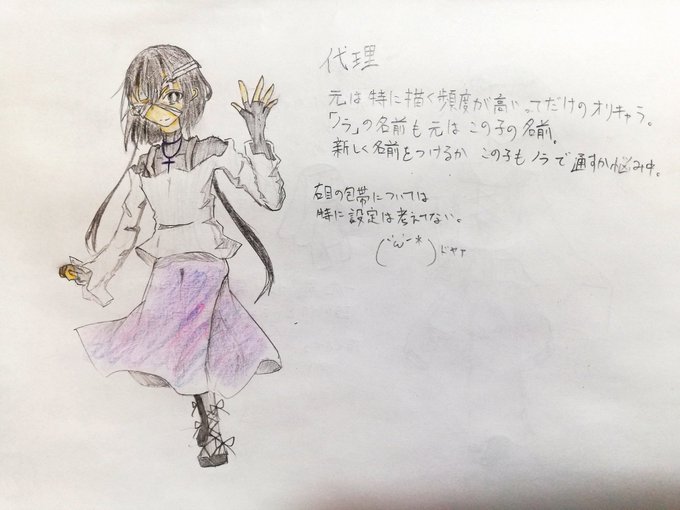 代理
元は特に描く頻度が高いってだけのオリキャラ。
「ノラ」の名前も元はこの子の名前。
新しく名前をつけるか この子もノラで通すか悩み中。
右目の包帯については
特に設定は考えてない。
(´・ω・｀*)ドヤァ